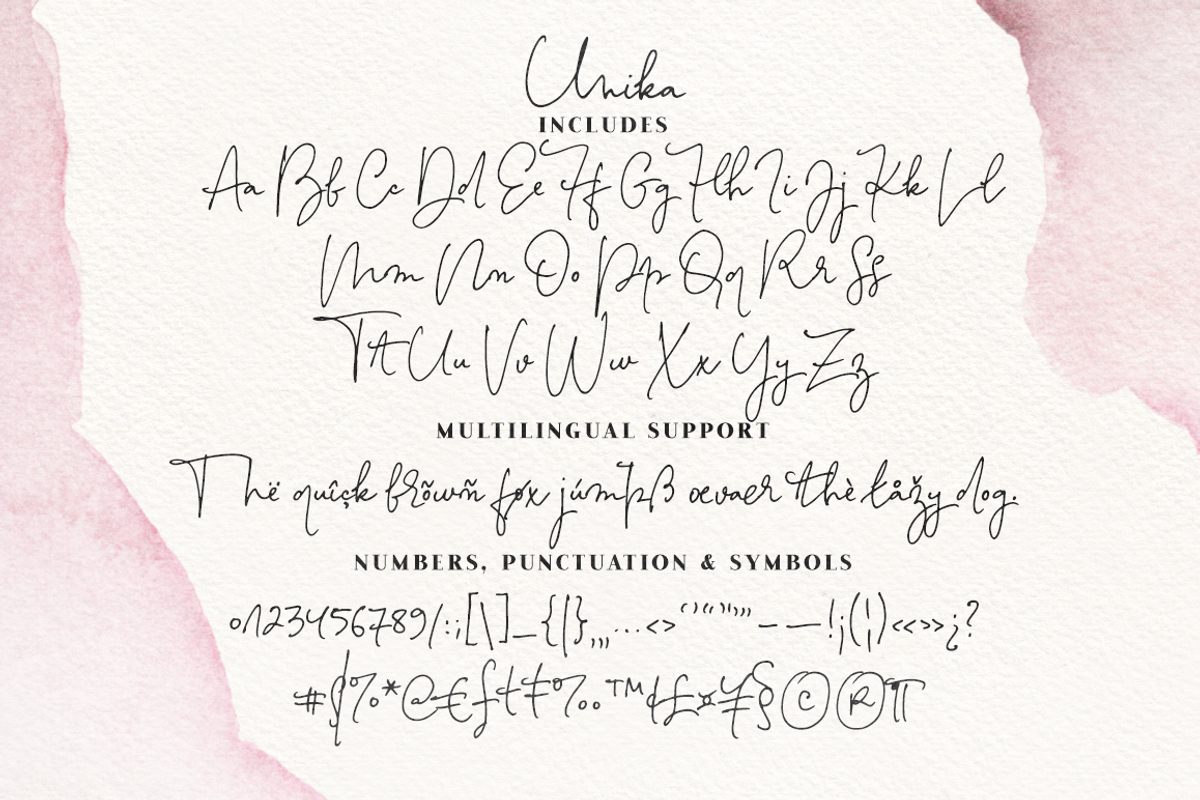 Unika
INCLUDES
Aa Bb Cc Dd Ee Ff Gg Hh Ii Jj Kk Ll
Mm Nn Oo Pp Qq Rr Ss
Tt Uu Vv Ww Xx Yy Zz
MULTILINGUAL SUPPORT
Thë quîçk brõwñ føx júmpß œvaer thè łåžy dog.
NUMBERS, PUNCTUATION & SYMBOLS
0123456789/:;[\]_{|}‚„…<>‘’“”'"–—!¡(¦)«‹›»¿?
#$%*@€ƒ†‡‰™¢£¤¥§©®¶